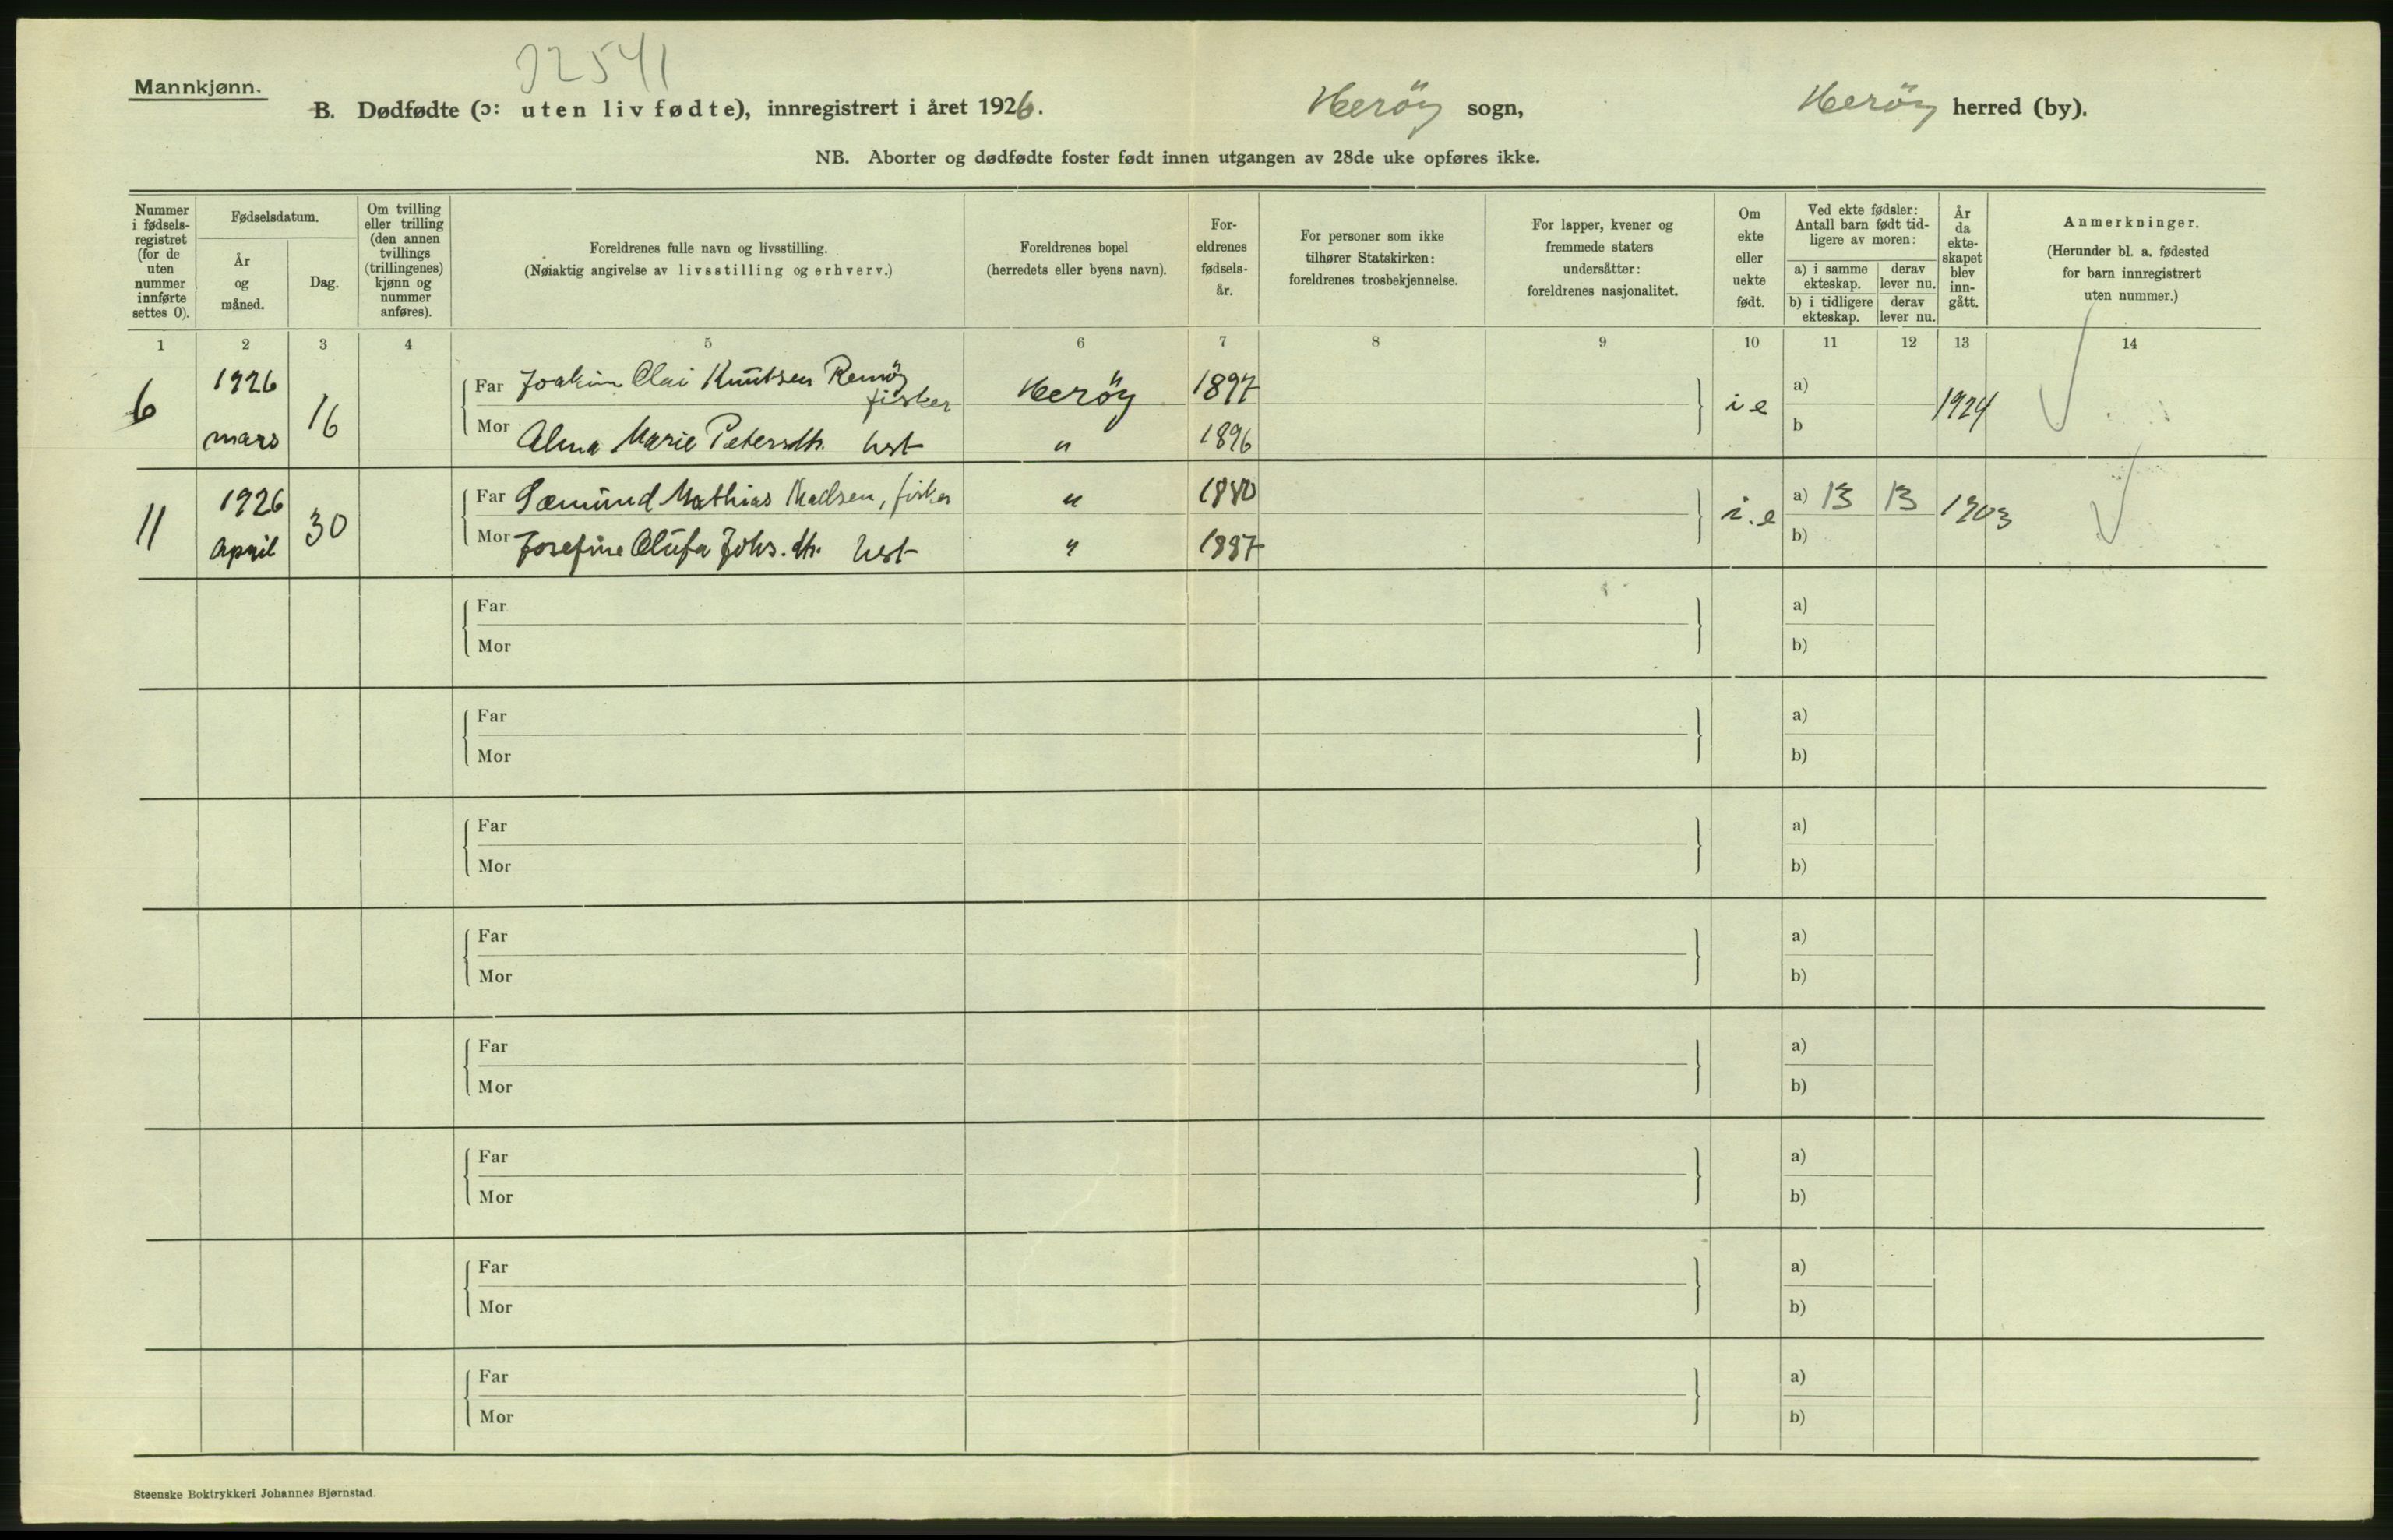 32541
Mannkjønn.
B. Dødfødte (ɔ: uten liv fødte), innregistrert i året 1926. Heröy sogn, Heröy herred (by).
NB. Aborter og dødfødte foster født innen utgangen av 28de uke opføres ikke.
Nummer i fødselsregistret (for de uten nummer innførte settes 0).
Fødselsdatum.
År og måned.
Dag.
Om tvilling eller trilling (den annen tvillings (trillingenes) kjønn og nummer anføres).
Foreldrenes fulle navn og livsstilling.
(Nøiaktig angivelse av livsstilling og erhverv.)
Foreldrenes bopel
(herredets eller byens navn).
Foreldrenes fødselsår.
For personer som ikke tilhører Statskirken: foreldrenes trosbekjennelse.
For lapper, kvener og fremmede staters undersåtter: foreldrenes nasjonalitet.
Om ekte eller uekte født.
Ved ekte fødsler: Antall barn født tidligere av moren:
a) i samme ekteskap. derav lever nu.
b) i tidligere ekteskap. derav lever nu.
År da ekteskapet blev inngått.
Anmerkninger.
(Herunder bl. a. fødested for barn innregistrert uten nummer.)
1 2 3 4 5 6 7 8 9 10 11 12 13 14
6 1926 mars 16 Far Joakim Olai Knutsen Remöy fisker Heröy 1897 i e a) 1924
Mor Alma Marie Petersdtr. hst " 1896 b
11 1926 April 30 Far Sæmund Mathias Madsen, fisker " 1880 i.e a) 13 13 1903
Mor Josefine Olufa Johs.dtr. hst " 1887 b)
Far a)
Mor b)
Far a)
Mor b)
Far a)
Mor b)
Far a)
Mor b)
Far a)
Mor b)
Far a)
Mor b)
Far a)
Mor b)
Far a)
Mor b)
Steenske Boktrykkeri Johannes Bjørnstad.